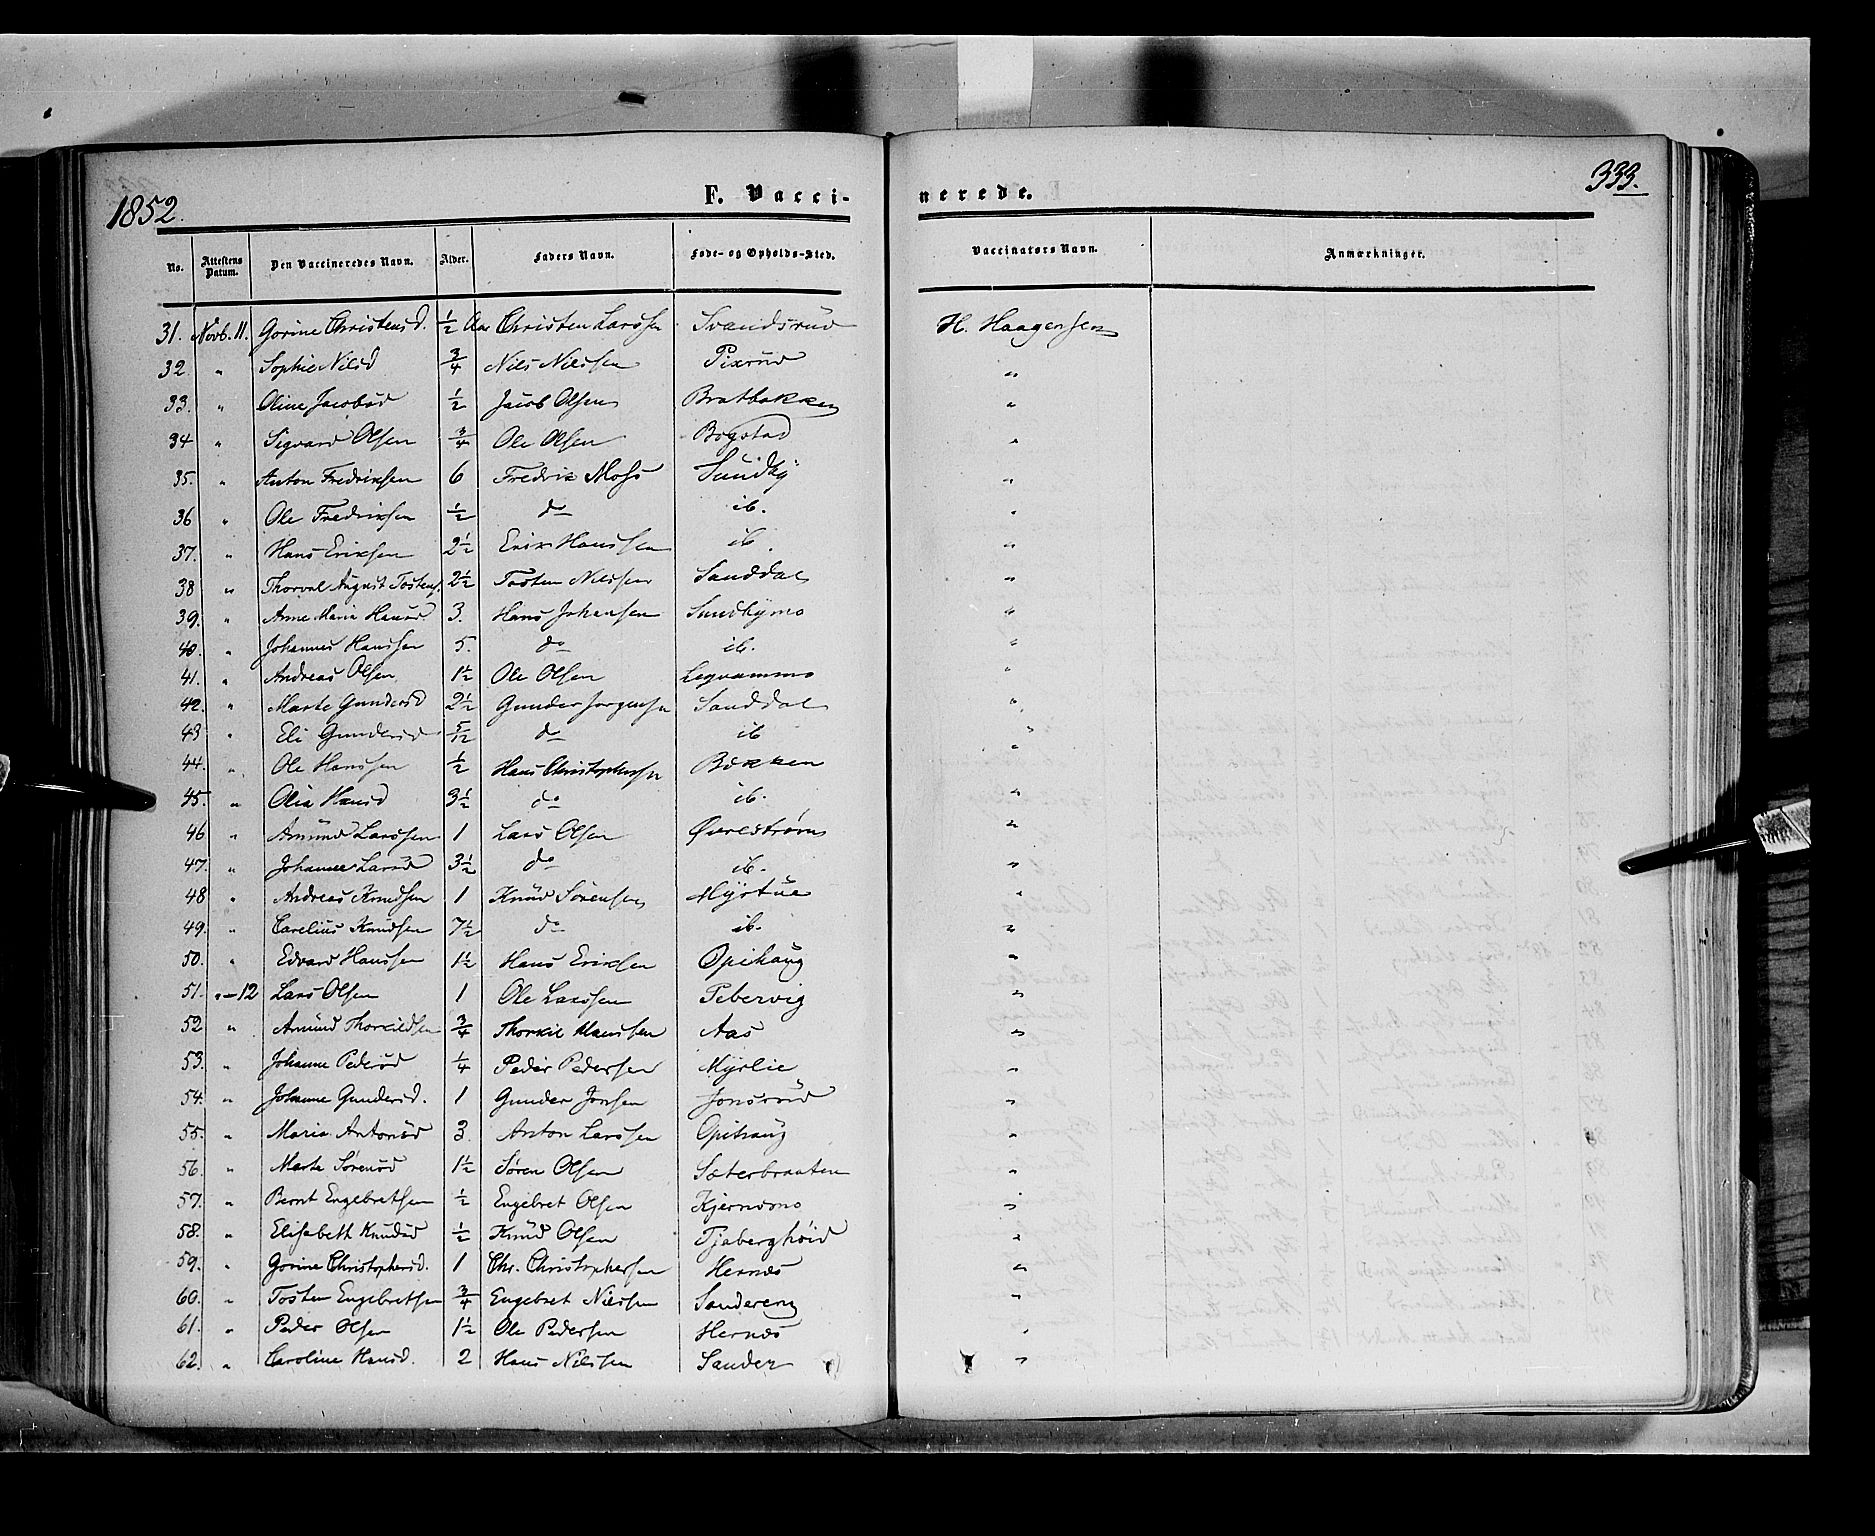 1852. F. Vaccinerede. 333.
No. Attestens Datum. Den Vaccineredes Navn. Alder. Faders Navn. Føde- og Opholds-Sted. Vaccinators Navn. Anmærkninger.
31. Novb. 11. Gorine Christensd. ½ Aar Christen Larssen Svandsrud H. Haagensen
32. " Sophie Nilsd ¾ Nils Nilssen Pixrud "
33. " Oline Jacobsd ½ Jacob Olsen Bratbakken "
34 " Sigvard Olsen ¾ Ole Olsen Bogstad "
35. " Anton Fredriksen 6 Fredrik Moss Sundby "
36 " Ole Fredriksen ½ do ib. "
37. " Hans Eriksen 2½ Erik Hanssen ib. "
38 " Thorval August Tostens. 2½ Tosten Nilsen Sanddal "
39. " Anne Maria Hansd 3. Hans Johansen Sundbymo "
40. " Johannes Hanssen 5. do ib. "
41. " Andreas Olsen 1½ Ole Olsen "
42. " Marte Gundersd 2½ Gunder Jorgensen Sanddal "
43 " Eli Gundersd 5/12 do ib "
44. " Ole Hanssen ½ Hans Christophersen Bakken "
45. " Olia Hansd 3½ do ib. "
46 " Amund Larssen 1 Lars Olsen Øvrestrøm "
47. " Johanne Larsd 3½ do ib. "
48 " Andreas Knudsen 1 Knud Sørensen Myrtue "
49. " Carelius Knudsen 7½ do ib. "
50. " Edvard Hanssen 1½ Hans Eriksen Opihaug "
51. " - 12 Lars Olsen 1 Ole Larssen Pebervig "
52 " Amund Thorkildsen ¾ Thorkil Hanssen Aas "
53. " Johanne Pedersd ¼ Peder Pedersen Myrlie "
54. " Johanne Gundersd. 1 Gunder Jonsen Jonsrud "
55. " Maria Antonsd 3. Anton Larssen Opihaug "
56. " Marte Sørensd 1½ Søren Olsen Sæterbraaten "
57. " Bernt Engebretsen ½ Engebret Olsen Kjernmo "
58. " Elisabeth Knudsd ½ Knud Olsen Tjaberghøid "
59. " Gorine Christophersd. 1 Chr. Christophersen Hernæs "
60. " Tosten Engebretsen ¾ Engebret Nilssen Sandereng "
61. " Peder Olsen 1½ Ole Pedersen Hernæs "
62. " Caroline Hansd. 2 Hans Nilssen Sander "